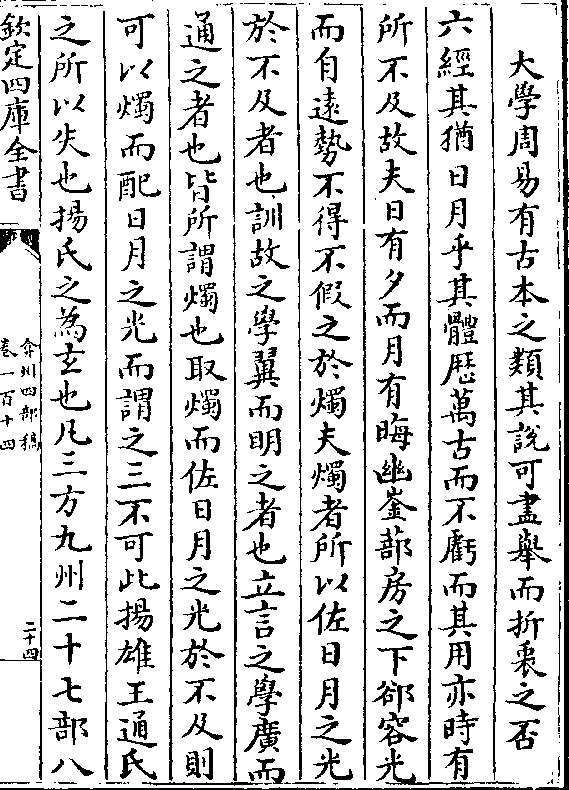 大學周易有古本之類其說可盡舉而折衷之否
六經其猶日月乎其體歷萬古而不虧而其用亦時有
所不及故夫日有夕而月有晦幽崟蔀房之下郤容光
而自遠勢不得不假之於燭夫燭者所以佐日月之光
於不及者也訓故之學翼而明之者也立言之學廣而
通之者也皆所謂燭也取燭而佐日月之光於不及則
可以燭而配日月之光而謂之三不可此揚雄王通氏
之所以失也揚氏之為玄也凡三方九州二十七部八
欽定四庫全書
弇州四部稿
卷一百十四
二十四